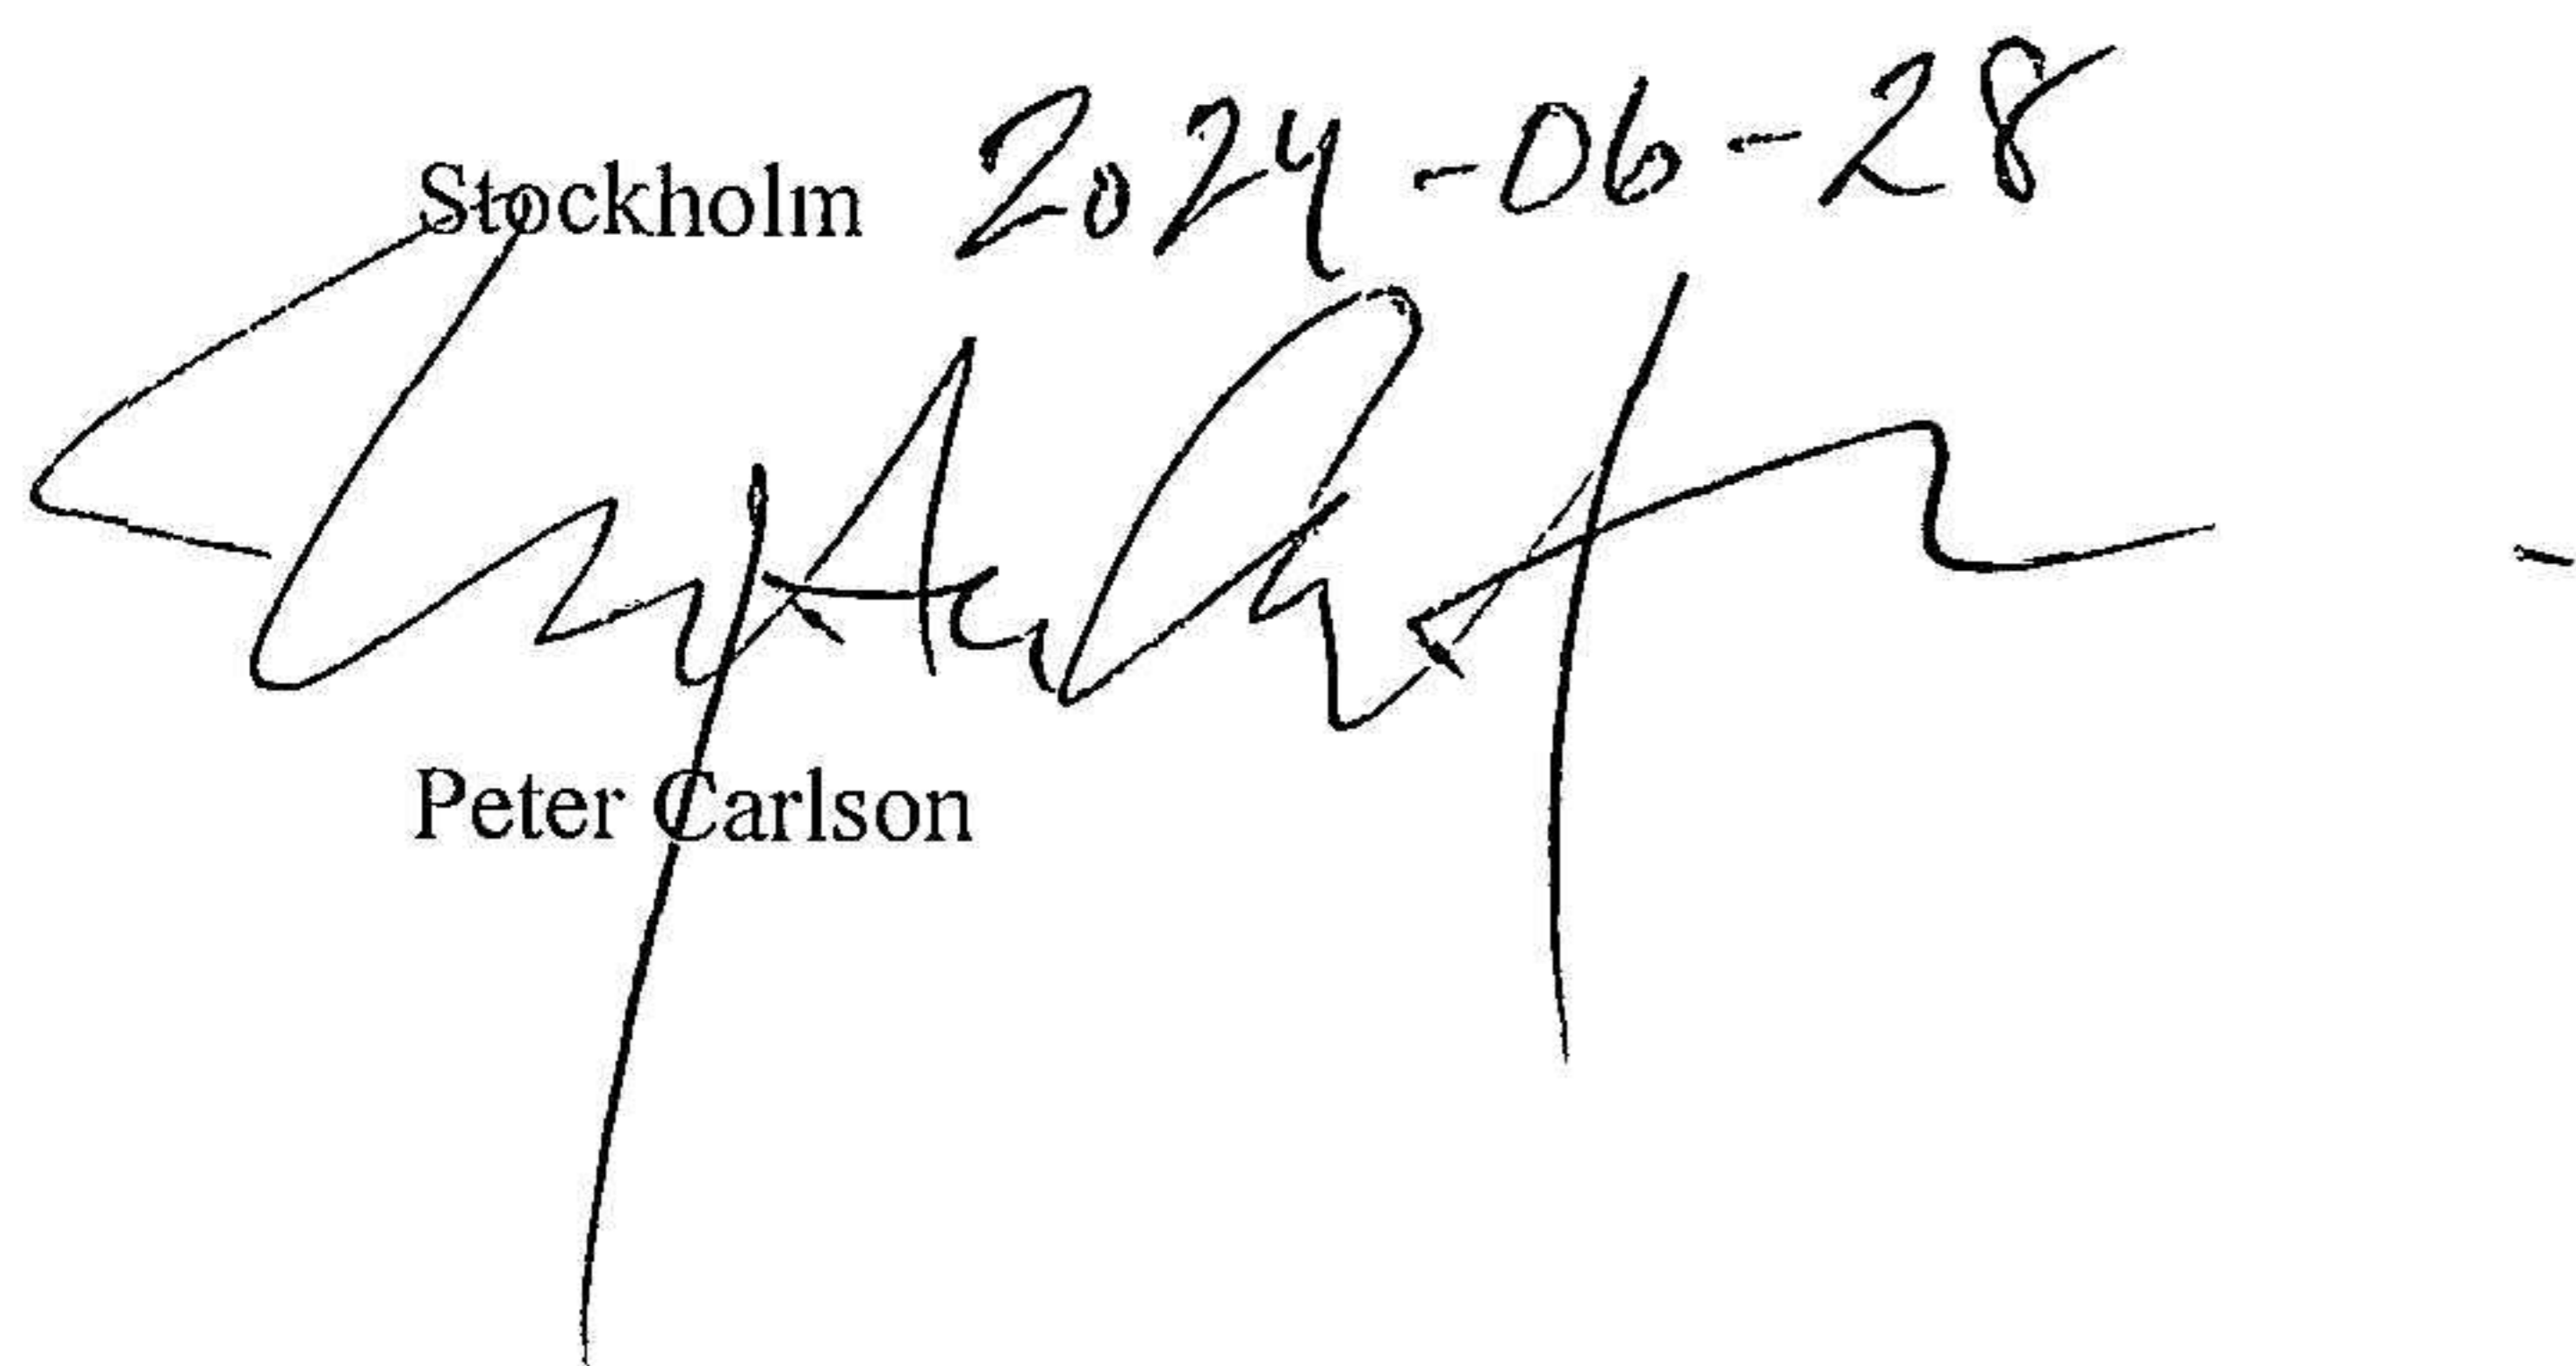 Stockholm 2024-06-28
Peter Carlson